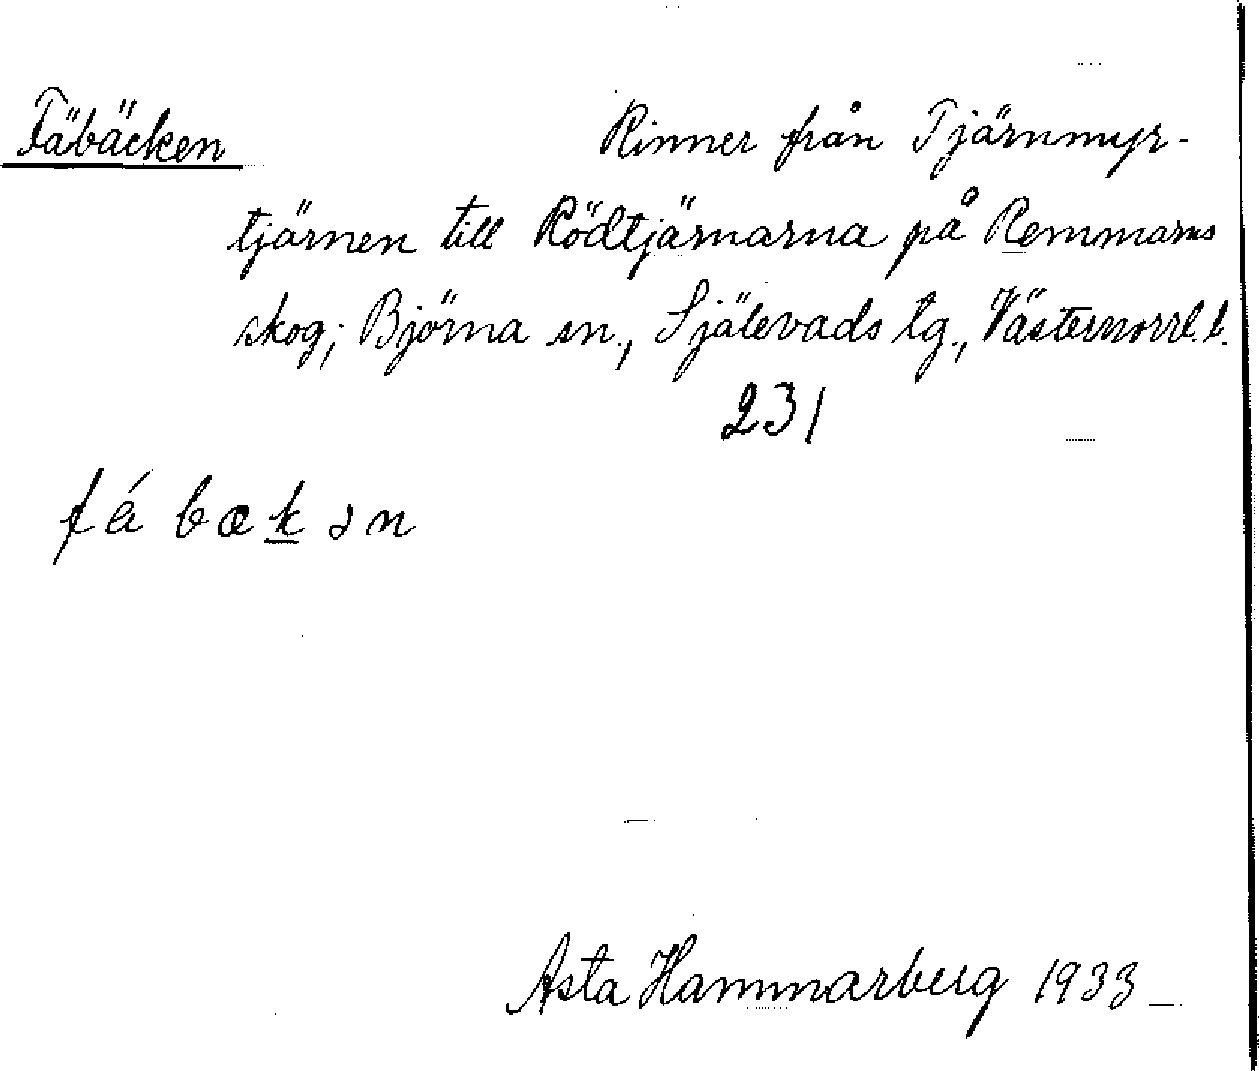 Fäbäcken Rinner från Tjärnmyr-
tjärnen till Rödtjärnarna på Remmarns
skog; Björna sn., Själevads tg., Västernorrl. l.
231
fé bækən
Asta Hammarberg 1933